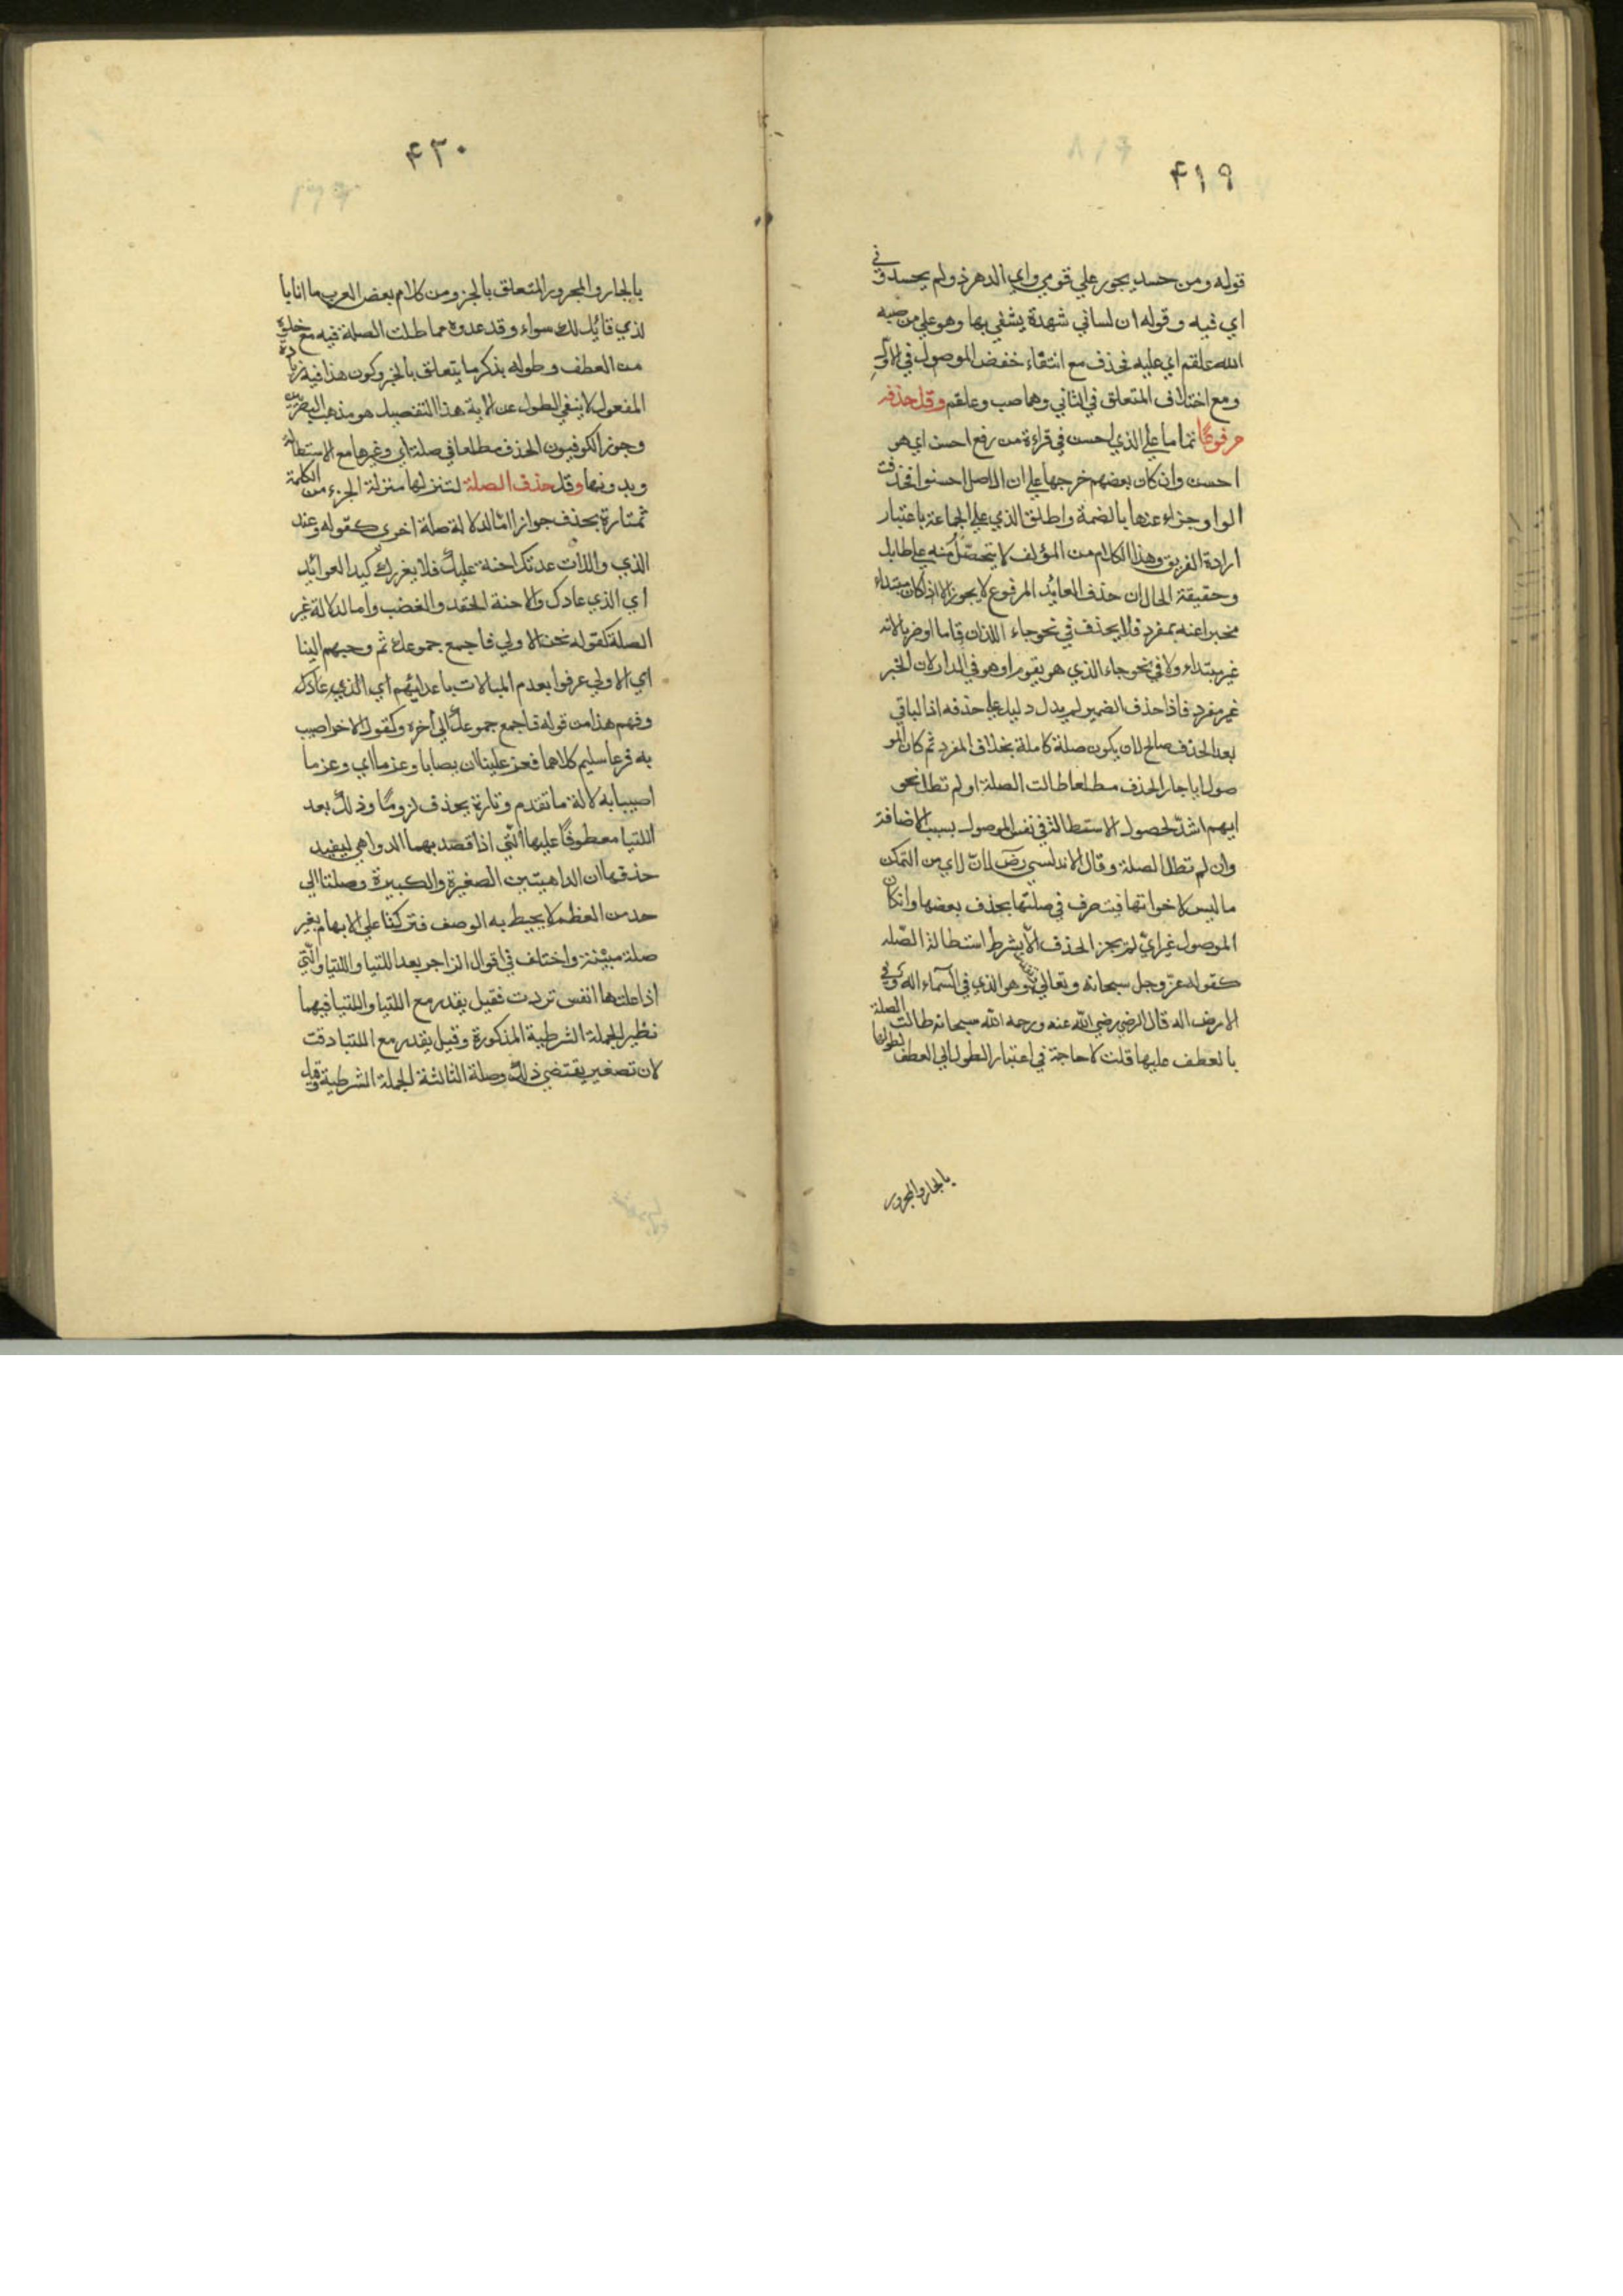 ۴۱۹
قوله ومن حسد يجور علي قومي واي الدهر ذو لم يحسدوني
اي فيه وقوله ان لساني شهدة يشفي بها وهو علي من صبه
الله علقم اي عليه فحذف مع انتفاء خفض الموصول في الاول
ومع اختلاف المتعلق في الثاني وهما صب وعلقم وقل حذفه
مرفوعًا تماما علي الذي احسن في قراءة من رفع احسن اي هو
احسن وان كان بعضهم خرجها علي ان الاصل احسنوا فحذفت
الواو جزاء عنها بالضمة واطلق الذي علي الجماعة باعتبار
ارادة الفريق وهذا الكلام من المؤلف لا يتحصل منه علي طايل
وحقيقة الحال ان حذف العايد المرفوع لا يجوز الا اذا كان مبتداء
مخبرا عنه بمفرد فلا يحذف في نحو جاء اللذان قاما او ضربا لانه
غير مبتداء ولا في نحو جاء الذي هو يقوم او هو في الدار لان الخبر
غير مفرد فاذا حذف الضمير لم يدل دليل علي حذفه اذ الباقي
بعد الحذف صالح لان يكون صلة كاملة بخلاف المفرد ثم كان المو
صول ايا جاز الحذف مطلعا طالت الصلة او لم تطل نحو
ايهم اشد لحصول الاستطالة في نفس الموصول بسبب الاضافة
وان لم تطل الصلة وقال الاندلسي رض لان لاي من التمكن
ما ليس لاخواتها فيتصرف في صلتها بحذف بعضها وان كان
الموصول غير ايّ لم يجز الحذف الا بشرط استطالة الصّله
كقوله عزّ وجل سبحانه وتعالي وهو الذي في السماء اله وفي
الارض اله قال الرضي رضي الله عنه ورحمه الله سبحانه طالت الصلة
بالعطف عليها قلت لا حاجة في اعتبار الطول الي العطف لطولها
بالجار والمجرور
۴۲۰
بالجار والمجرور المتعلق بالجز ومن كلام بعض العرب ما انا با
لذي قائل لك سواء وقد عدوه مما طلت الصلة فيه مع خلوه
من العطف وطوله بذكر ما يتعلق بالخبر وكون هذا فيه زيادة
المفعول لا ينفي الطول عن الاية هذا التفصيل هو مذهب البصريين
وجوز الكوفيون الحذف مطلعا في صلة اي وغيرها مع الاستطالة
وبدونها وقل حذف الصلة لتنزلها منزلة الجزء من الكلمة
ثم تارة يحذف جوازا امّا لدلالة صلة اخرى كقوله وعند
الذي واللات عدنك احنة عليك فلا يغررك كيد العوائد
اي الذي عادك والاحنة الحقد والغضب واما لدلالة غير
الصلة كقوله نحن الاولي فاجمع جموعك ثم وجههم الينا
اي الاولي عرفوا بعدم المبالات باعدائهم اي الذي عادك
وفهم هذا من قوله فاجمع جموعك الي اخره وكقول الاخر اصيب
به فرعا سليم كلاهما فعز علينا ان يصابا وعز ما اي وعز ما
اصيبا به لالة ما تقدم وتارة يحذف لزومًا وذلك بعد
اللتيا معطوفًا عليها الّتي اذا قصد بهما الدواهي ليفيد
حذفها ان الداهيتين الصغيرة والكبيرة وصلتا الي
حد من العظم لا يحيط به الوصف فتركنا علي الابهام بغير
صلة مبيّنة واختلف في اقوال الزاجر بعد اللتيا واللتيا والّتي
اذا علتها انفس تردت فقيل يقدر مع اللتيا واللتيا فيهما
نظير الجملة الشرطية المذكورة وقيل يقدر مع اللتيا دقت
لان تصغير يقتضي ذلك وصلة الثالثة الجملة الشرطية وقيل